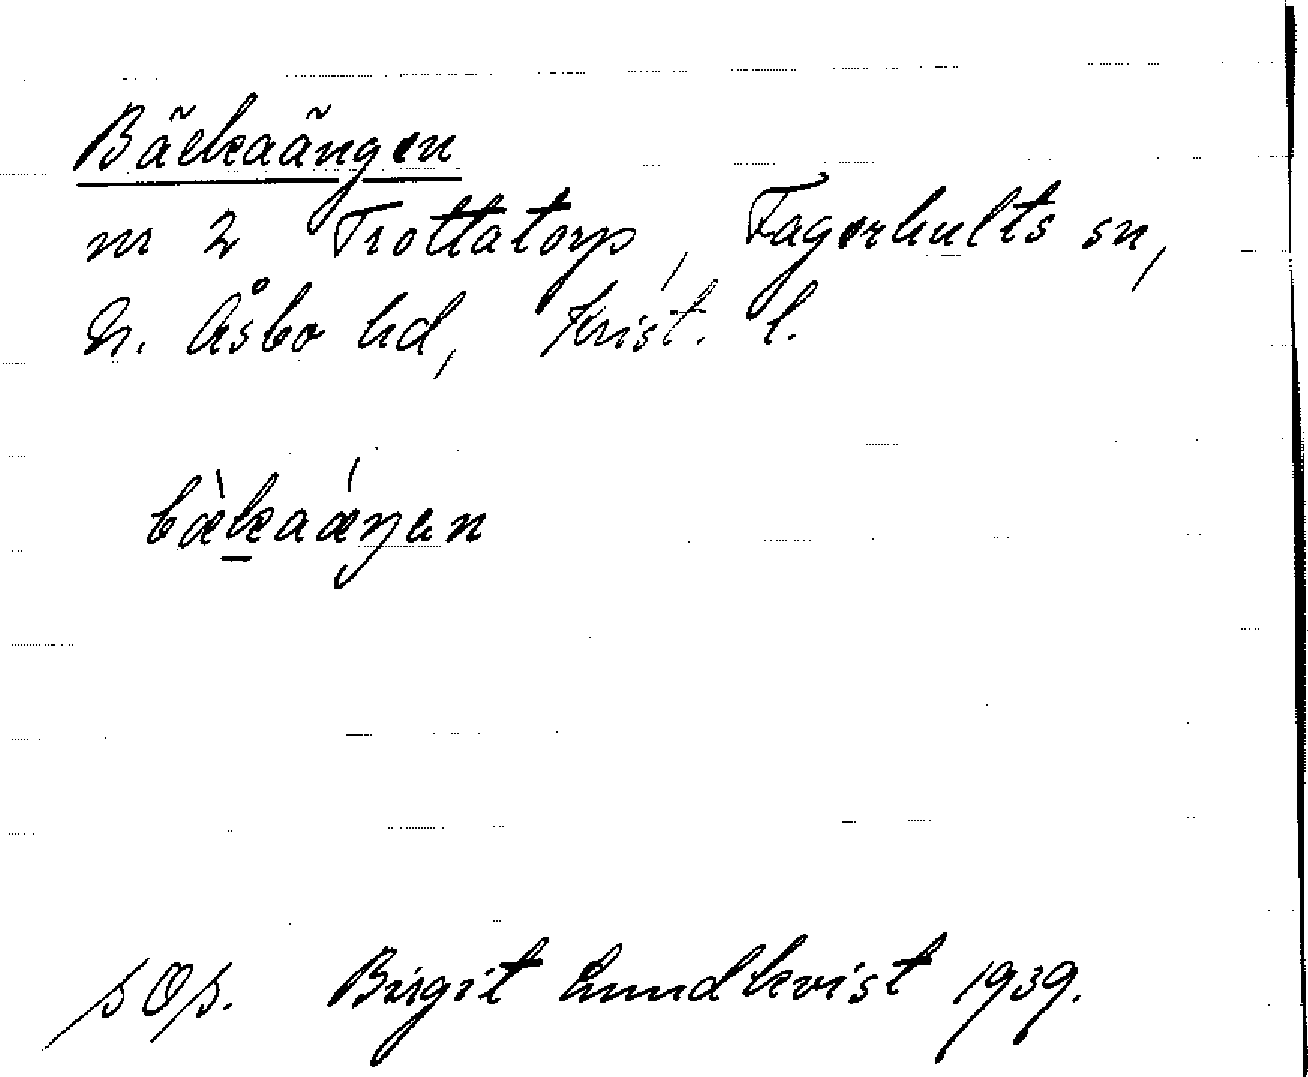 Bäckaängen
nr 2 Trottatorp, Fagerhults sn,
N. Åsbo hd, Krist. l.
bæ̀kaǽŋen
Birgit Lundkvist 1939.